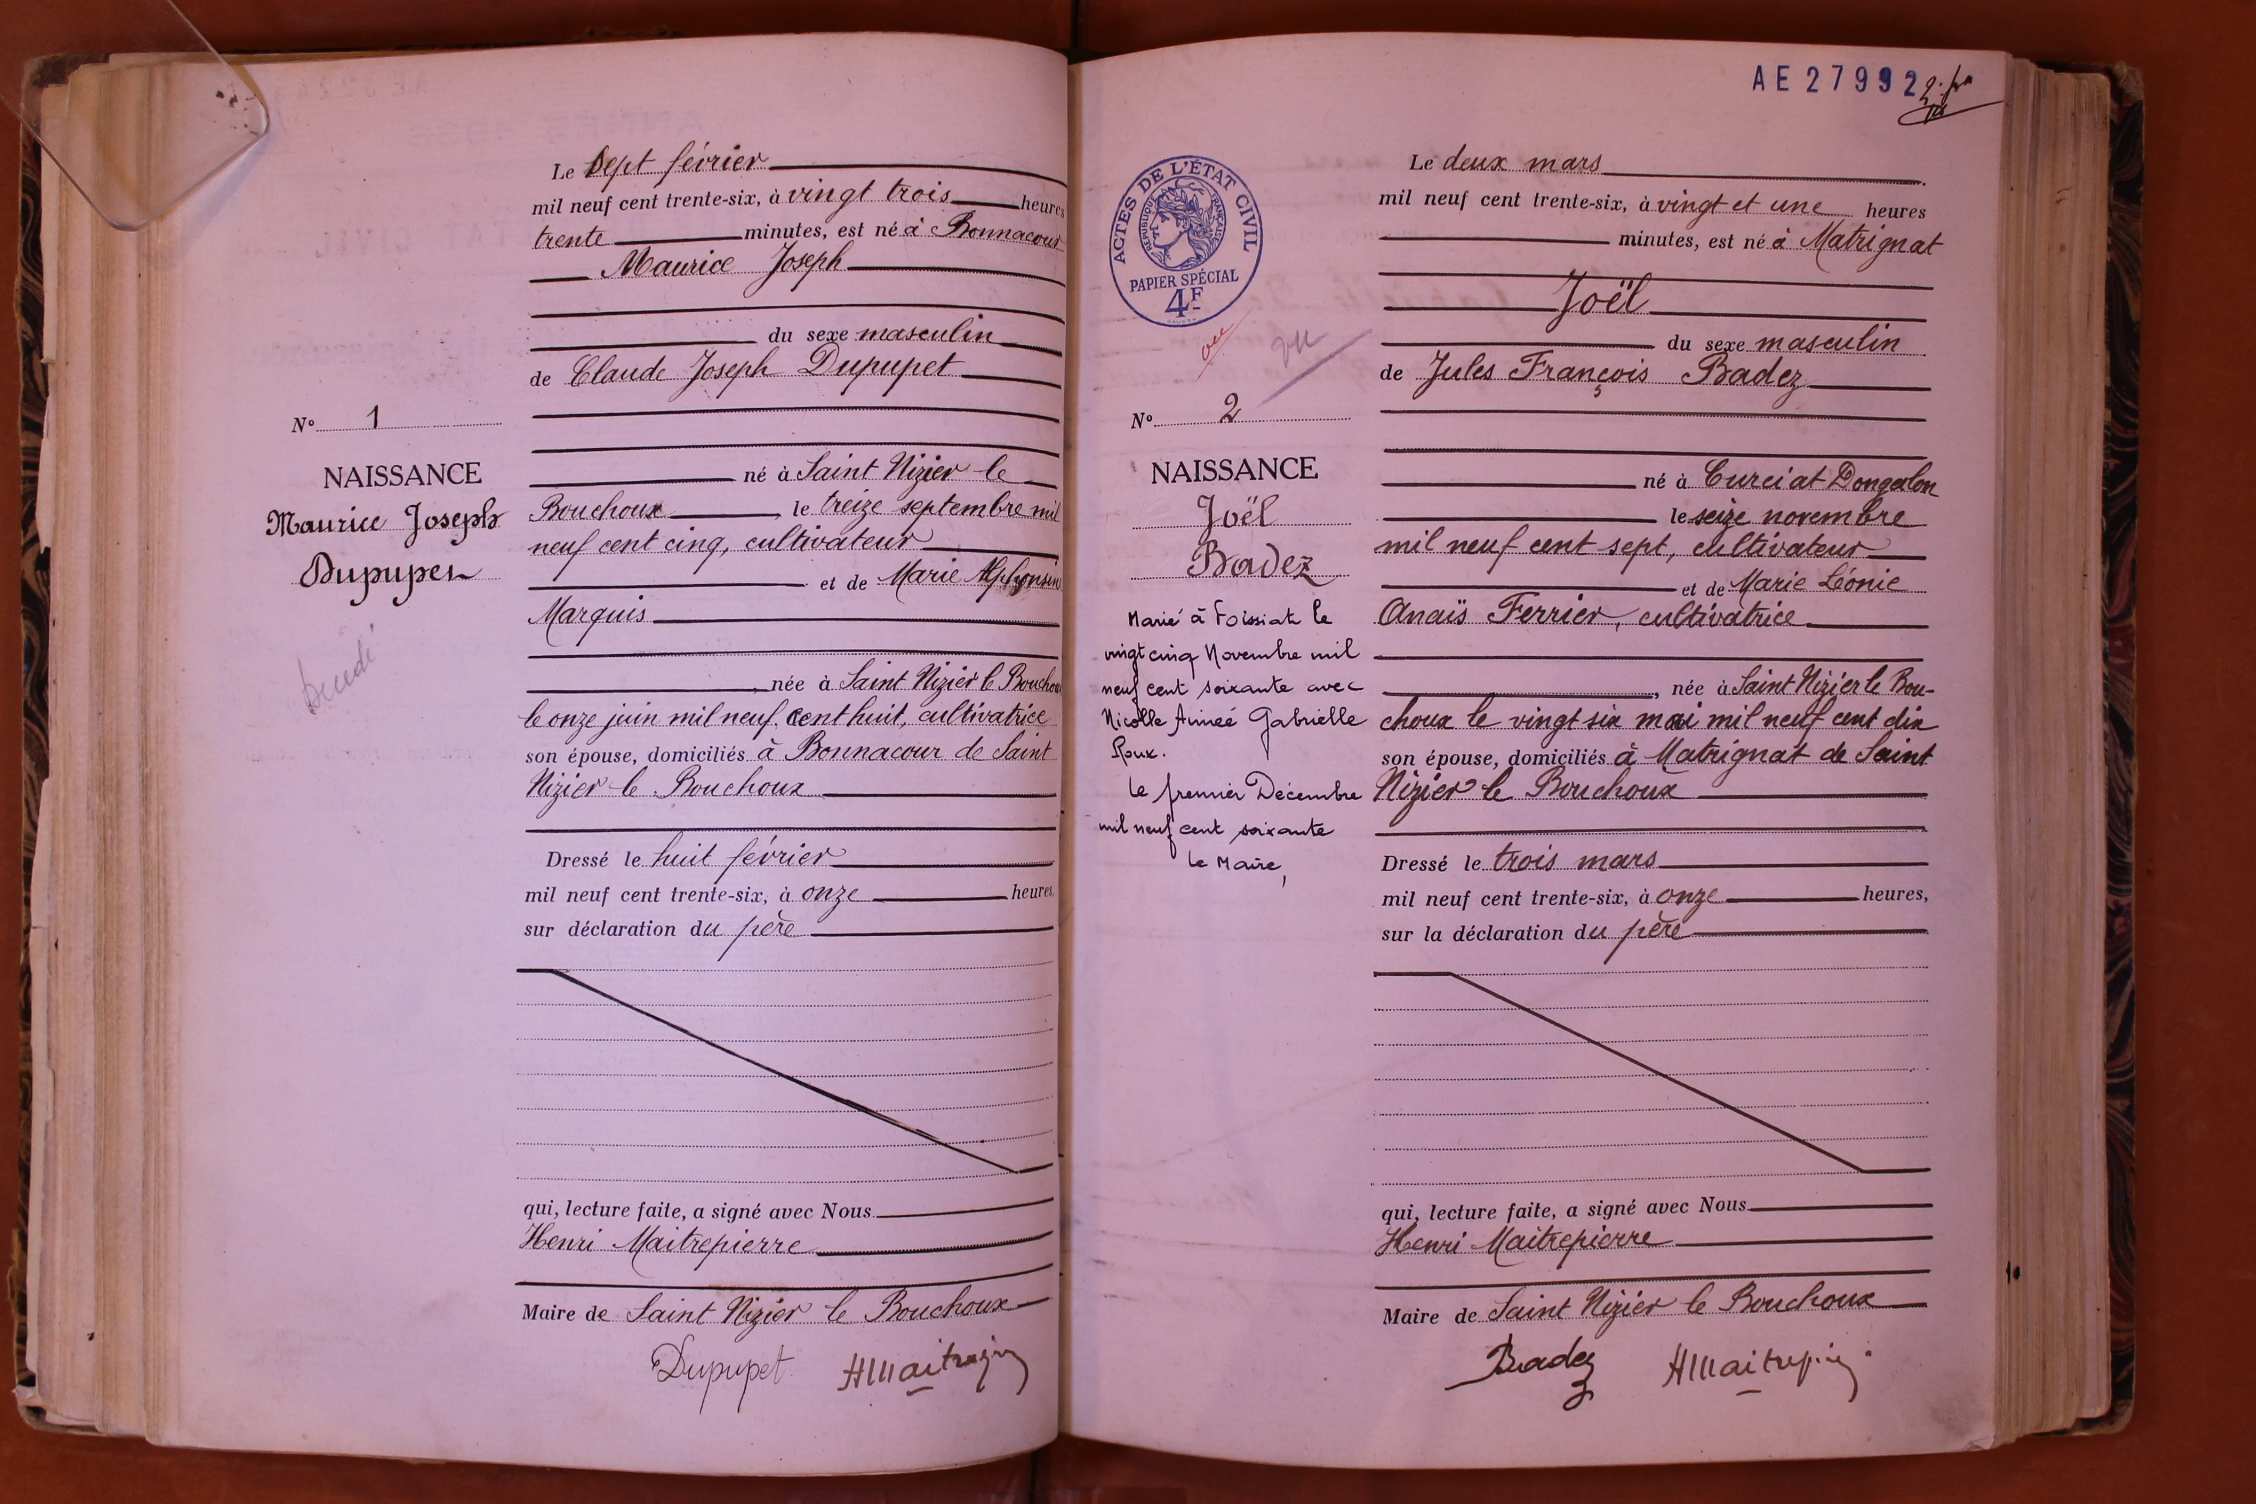 Le sept février
mil neuf cent trente-six, à vingt trois heures
trente minutes, est né à Bonnacour
Maurice Joseph
du sexe masculin
de Claude Joseph Dupupet
né à Saint Nizier le
Bouchoux le treize septembre mil
neuf cent cinq, cultivateur
et de Marie Alphonsine
Marquis
née à Saint Nizier le Bouchoux
le onze juin mil neuf cent huit, cultivatrice
son épouse, domiciliés à Bonnacour de Saint
Nizier le Bouchoux
Dressé le huit février
mil neuf cent trente-six, à onze heures,
sur déclaration du père
qui, lecture faite, a signé avec Nous
Henri Maitrepierre
Maire de Saint Nizier le Bouchoux
Dupupet HMaitrepierre
N° 1
NAISSANCE
Maurice Joseph
Dupupet
AE 27992
ACTES DE L'ÉTAT CIVIL
RÉPUBLIQUE FRANÇAISE
PAPIER SPÉCIAL
4F
vu
vu
N° 2
NAISSANCE
Joël
Badez
Marié à Foissiat le
vingt cinq Novembre mil
neuf cent soixante avec
Nicolle Aimée Gabrielle
Roux.
Le premier Décembre
mil neuf cent soixante
le Maire,
Le deux mars
mil neuf cent trente-six, à vingt et une heures
minutes, est né à Matrignat
Joël
du sexe masculin
de Jules François Badez
né à Curciat Dongalon
le seize novembre
mil neuf cent sept, cultivateur
et de Marie Léonie
Anaïs Ferrier, cultivatrice
, née à Saint Nizier le Bou-
choux le vingt six mai mil neuf cent dix
son épouse, domiciliés à Matrignat de Saint
Nizier le Bouchoux
Dressé le trois mars
mil neuf cent trente-six, à onze heures,
sur la déclaration du père
qui, lecture faite, a signé avec Nous
Henri Maitrepierre
Maire de Saint Nizier le Bouchoux
Badez HMaitrepierre